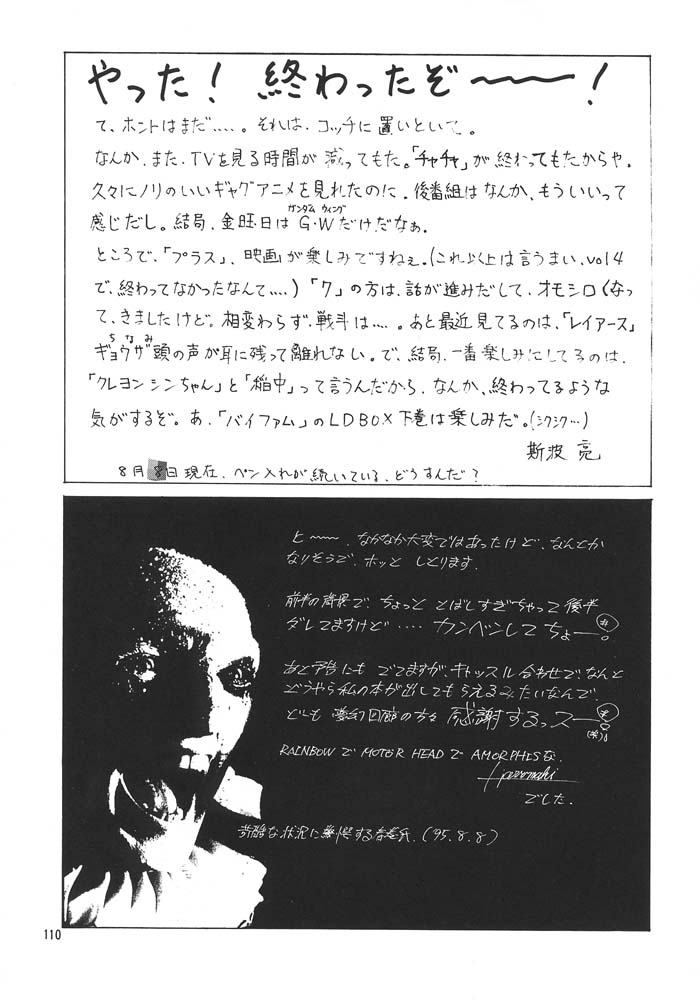 やった! 終わったぞ〜〜!
て、ホントはまだ.....。それは、コッチに置いといて。
なんか、また、TVを見る時間が減ってもた。「チャチャ」が終わってもたからや。
久々にノリのいいギャグアニメを見れたのに、後番組はなんか、もういいって
ガンダム ウィング
感じだし。結局、金旺日はG・Wだけだなぁ。
ところで、「プラス」、映画が楽しみですねぇ。(これ以上は言うまい、vol4
で、終わってなかったなんて....)「7」の方は、話が進みだして、オモシロくなっ
て、きましたけど。相変わらず、戦斗は....。あと最近見てるのは、「レイアース」
ちなみ
ギョウザ頭の声が耳に残って離れない。で、結局、一番楽しみにしてるのは、
「クレヨンシンちゃん」と「稲中」って言うんだから、なんか、終わってるような
気がするぞ。あ、「バイファム」のLDBOX下巻は楽しみだ。(シクシク...)
斯波 亮
8月8日現在、ペン入れが続いている、どうすんだ?
ヒ〜〜、なかなか大変ではあったけど、なんとか
なりそうで、ホッと しとります.
前半の背景で、ちょっと とばしすぎちゃって後半
ダレてますけど.... カンベンしてちょー。
あと予告にも でてますが、キャッスル合わせで、なんと
どうやら私の本が出してもらえるみたいなんで、
どーも 夢幻回廊の方々 感謝するっスー
(笑)
RAINBOWでMOTÖR HEADでAMORPHISな.
でした.
苛酷な状況に
(95.8.8)
110